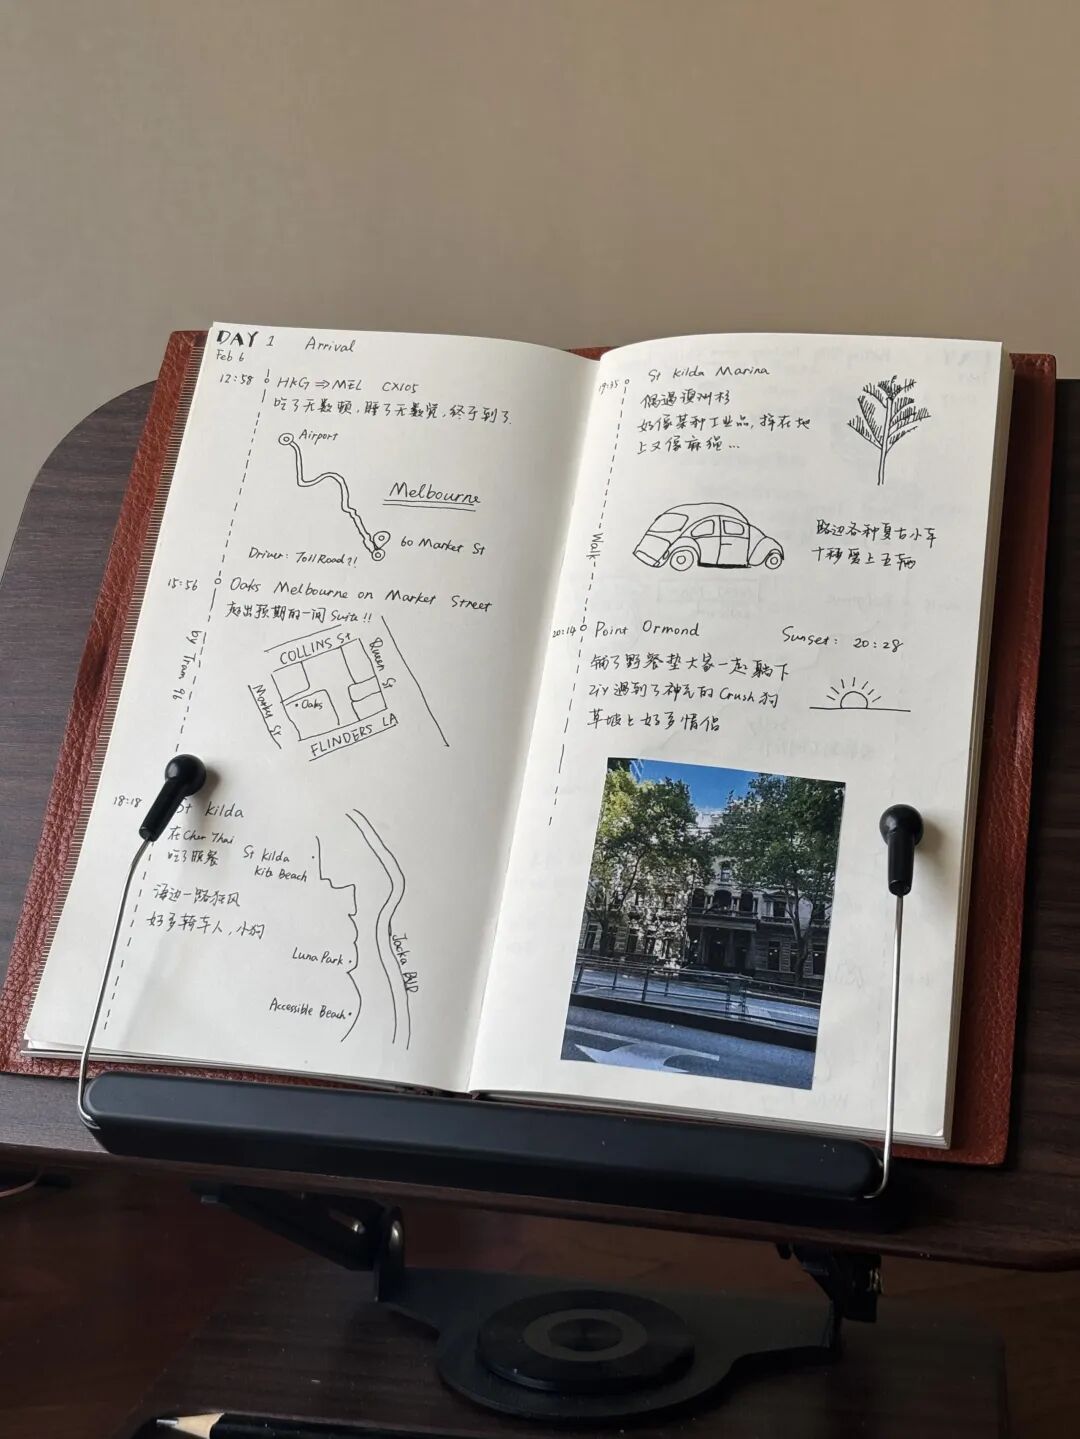 DAY 1 Arrival
Feb 6
12:58 HKG ⇒ MEL CX105
吃了无数顿,睡了无数觉,终于到了.
Airport
Melbourne
60 Market St
Driver: Toll Road?!
15:56 Oaks Melbourne on Market Street
超出预期的一间 Suite!!
by Tram 96
COLLINS St
Queen St
Market St
Oaks
FLINDERS LA
18:18 St Kilda
在 Cher Thai
吃了晚餐
海边一路狂风
好多骑车人,小狗
St Kilda
Kite Beach
Luna Park
Accessible Beach
Jacka BVD
19:35 St Kilda Marina
偶遇澳洲杉
好像某种工业品,摔在地
上又像麻绳...
Walk
路边各种复古小车
十种爱上五辆
20:14 Point Ormond
Sunset: 20:28
铺了野餐垫大家一起躺下
遇到了神气的 Crush 狗
草坡上好多情侣